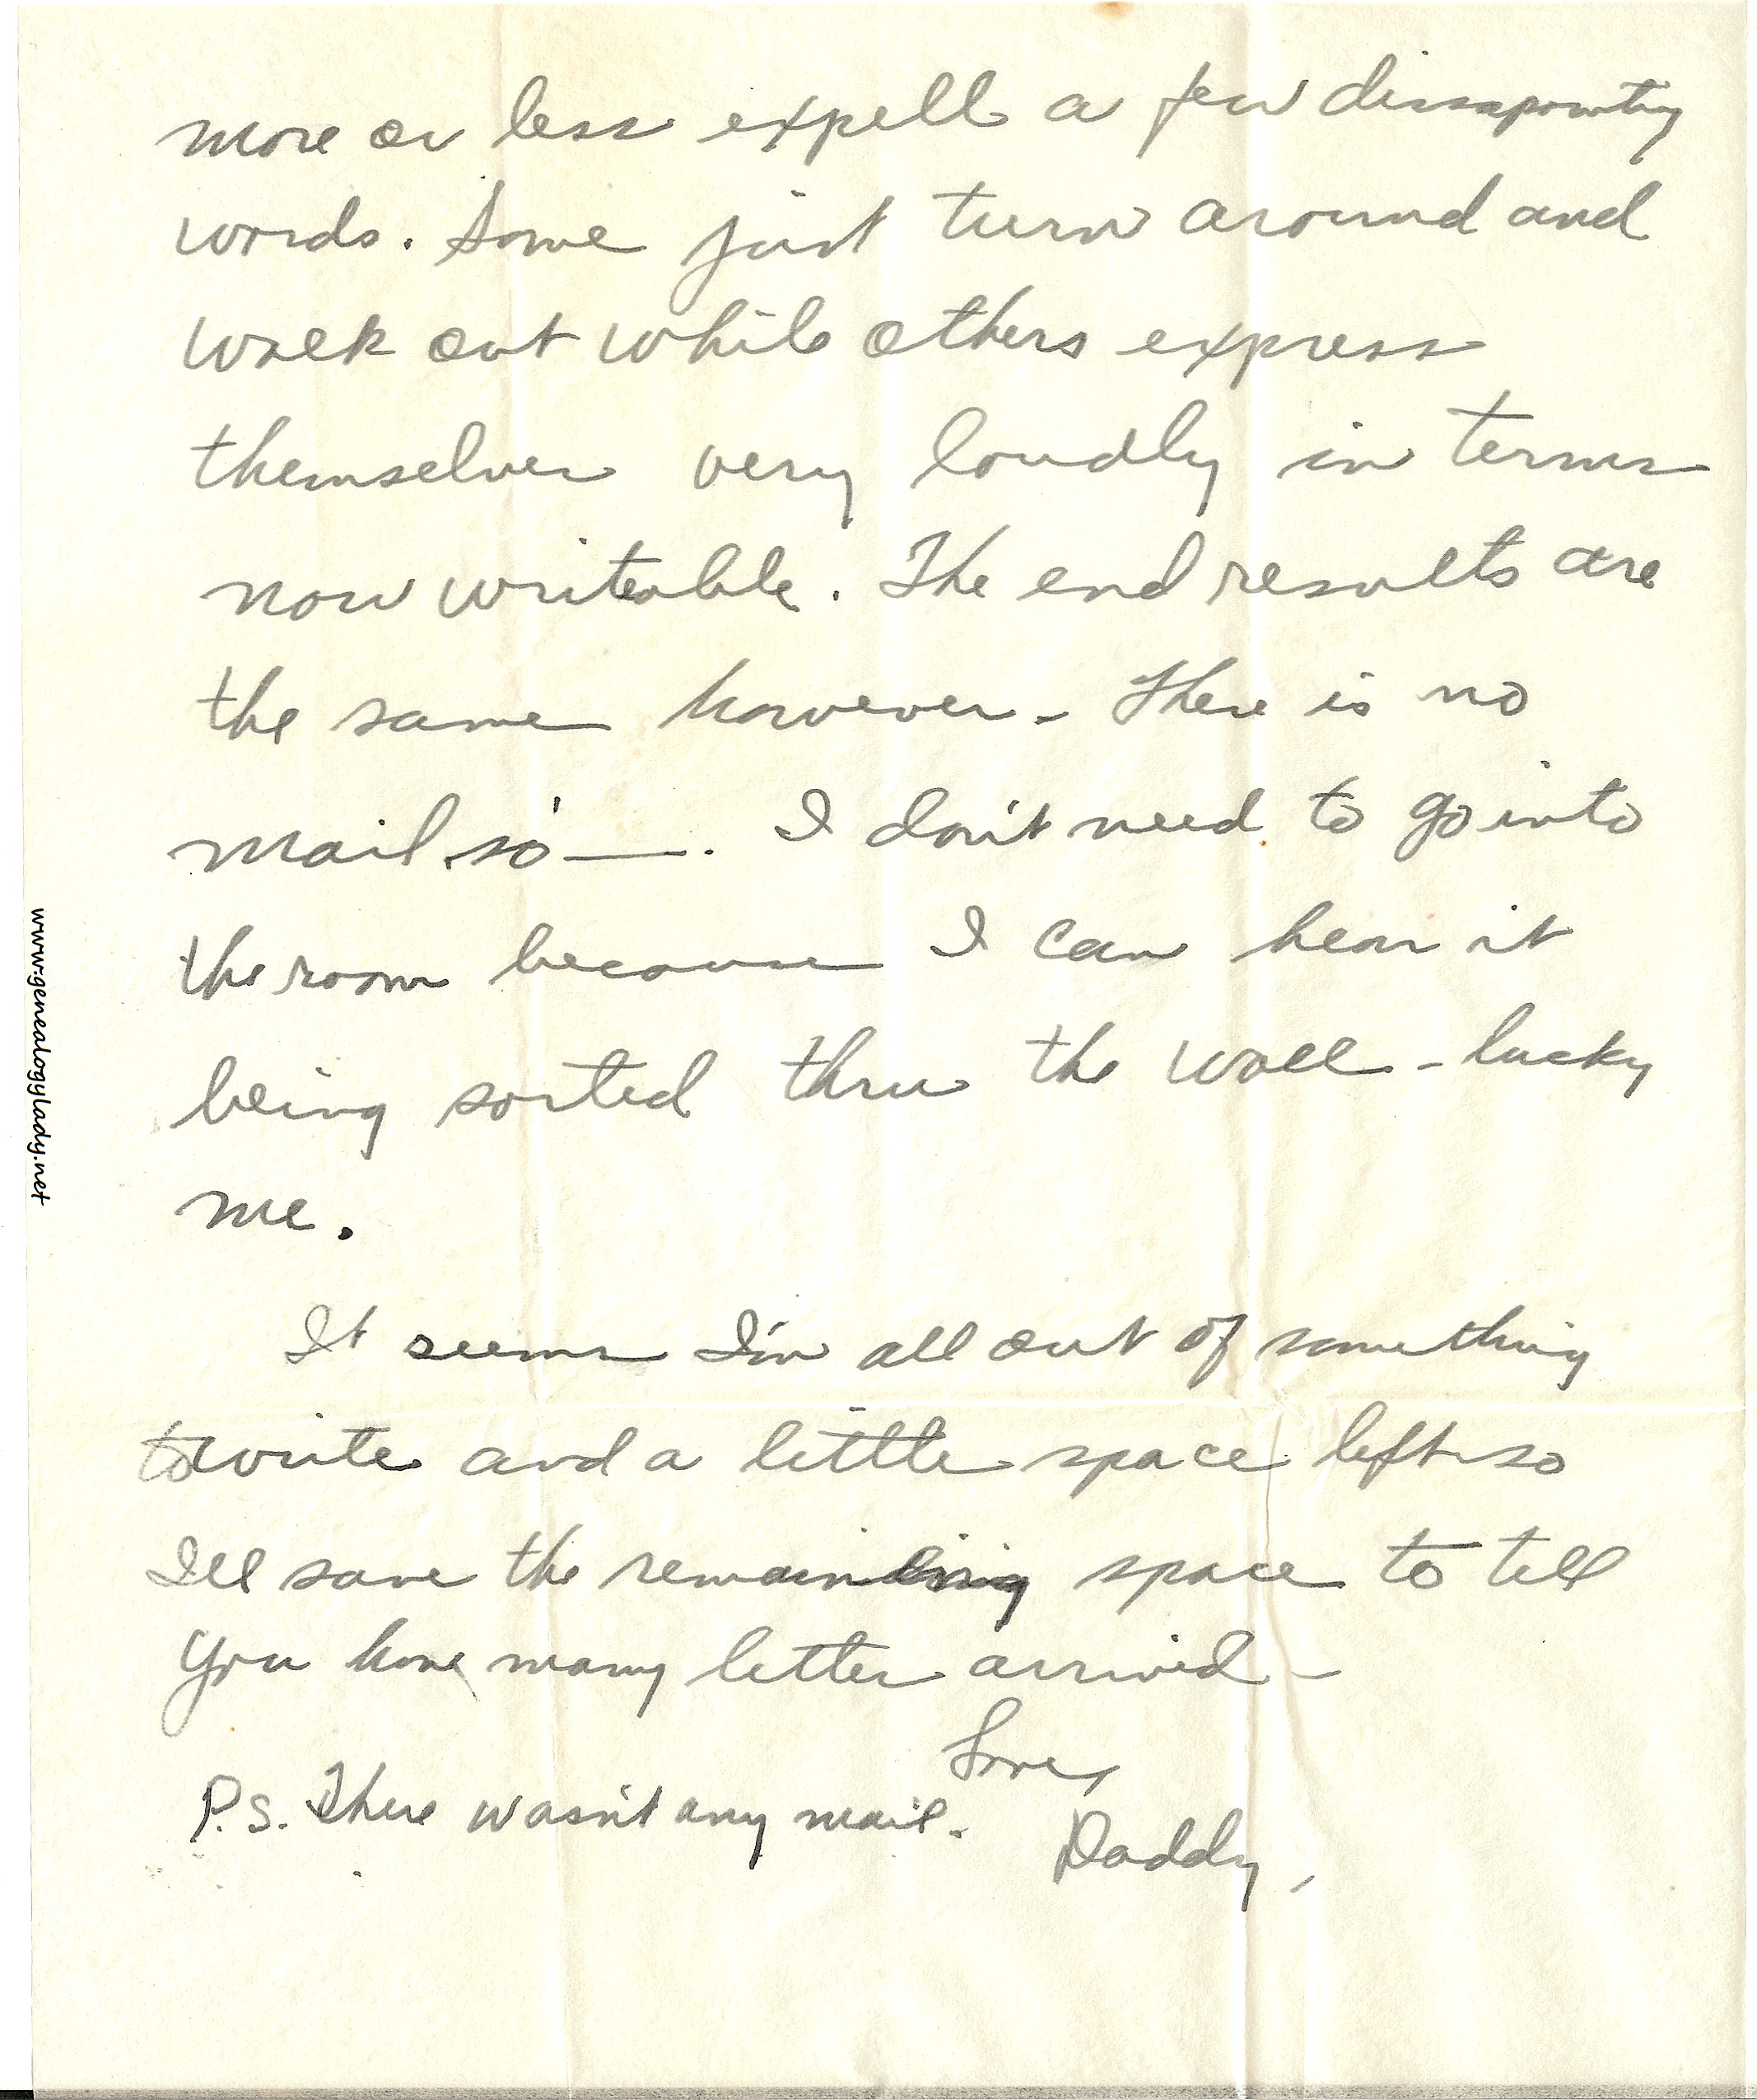 more or less expell a few dissapointing
words. Some just turn around and
walk out while others express
themselves very loudly in terms
non writeable. The end results are
the same however - There is no
mail so —. I don't need to go into
the room because I can hear it
being sorted thru the wall - lucky
me.
It seems I'm all out of something
to write and a little space left so
I'll save the remaining space to tell
you how many letter arrived -
Love,
P.S. There wasn't any mail.
Daddy,
www.genealogylady.net